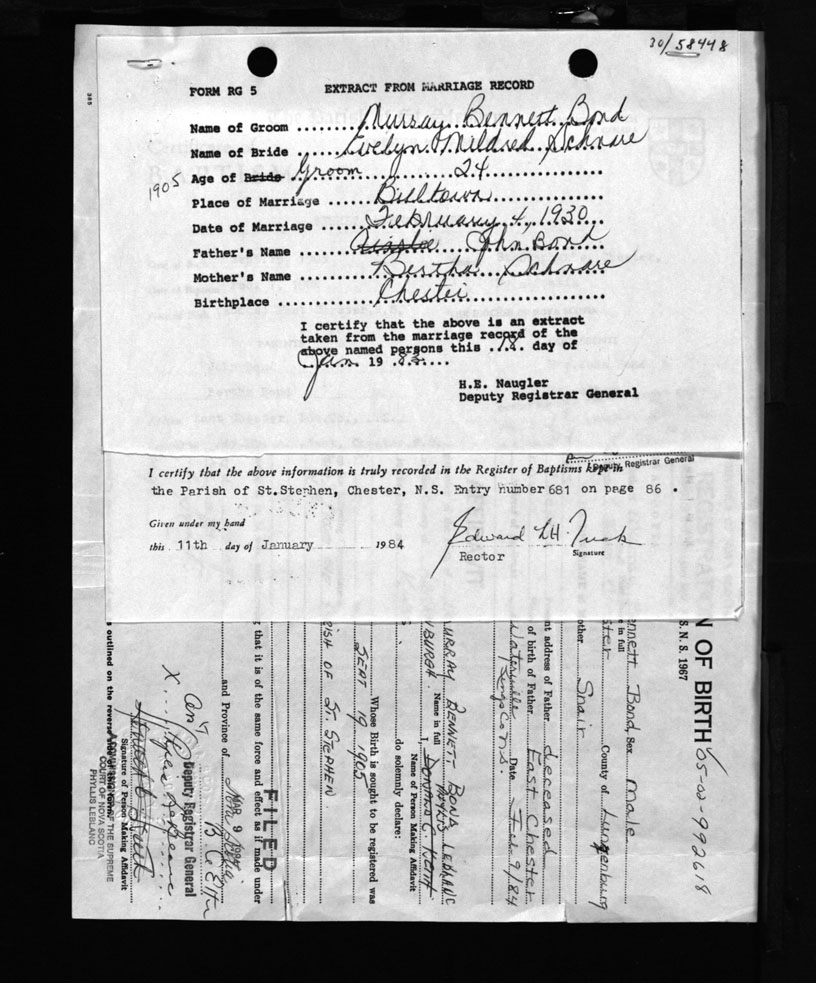 30/58448
FORM RG 5 EXTRACT FROM MARRIAGE RECORD
Name of Groom ........Murray Bennett Bond
Name of Bride ......Evelyn Mildred Schnare
1905 Age of Bride Groom ........24..................
Place of Marriage ......Billtown................
Date of Marriage .......February 4, 1930...
Father's Name ........Ainslie.....John Bond
Mother's Name ..........Bertha Schnare
Birthplace ............Chester..................
I certify that the above is an extract
taken from the marriage record of the
above named persons this .18. day of
Jan. 19 .83....
H.E. Naugler
Deputy Registrar General
Deputy Registrar General
I certify that the above information is truly recorded in the Register of Baptisms kept in
the Parish of St.Stephen, Chester, N.S. Entry number 681 on page 86 .
Given under my hand
this 11th day of January 1984
Edward LH. Tuck
Rector Signature
N OF BIRTH 05-02-992618
S. N. S. 1967
ennett Bond, Sex male
e in full
ster County of Lunenburg
other Snair
nt address of Father deceased
of birth of Father East Chester
Waterville Kings Co N.S. Date Feb 9/84
MURRAY BENNETT BOND PHYLIS LEBLANC
NBURGH. Name in full I, DONALD C. KEITH
Name of Person Making Affidavit
do solemnly declare:
Whose Birth is sought to be registered was
SEPT 19 1905
RISH OF ST. STEPHEN
FILED
g that it is of the same force and effect as if made under
and Province of Nova Scotia
MAR 9
Deputy Registrar General
X
Signature of Person Making Affidavit
s outlined on the reverse side of the form.
OF THE SUPREME
COURT OF NOVA SCOTIA
PHYLLIS LEBLANC